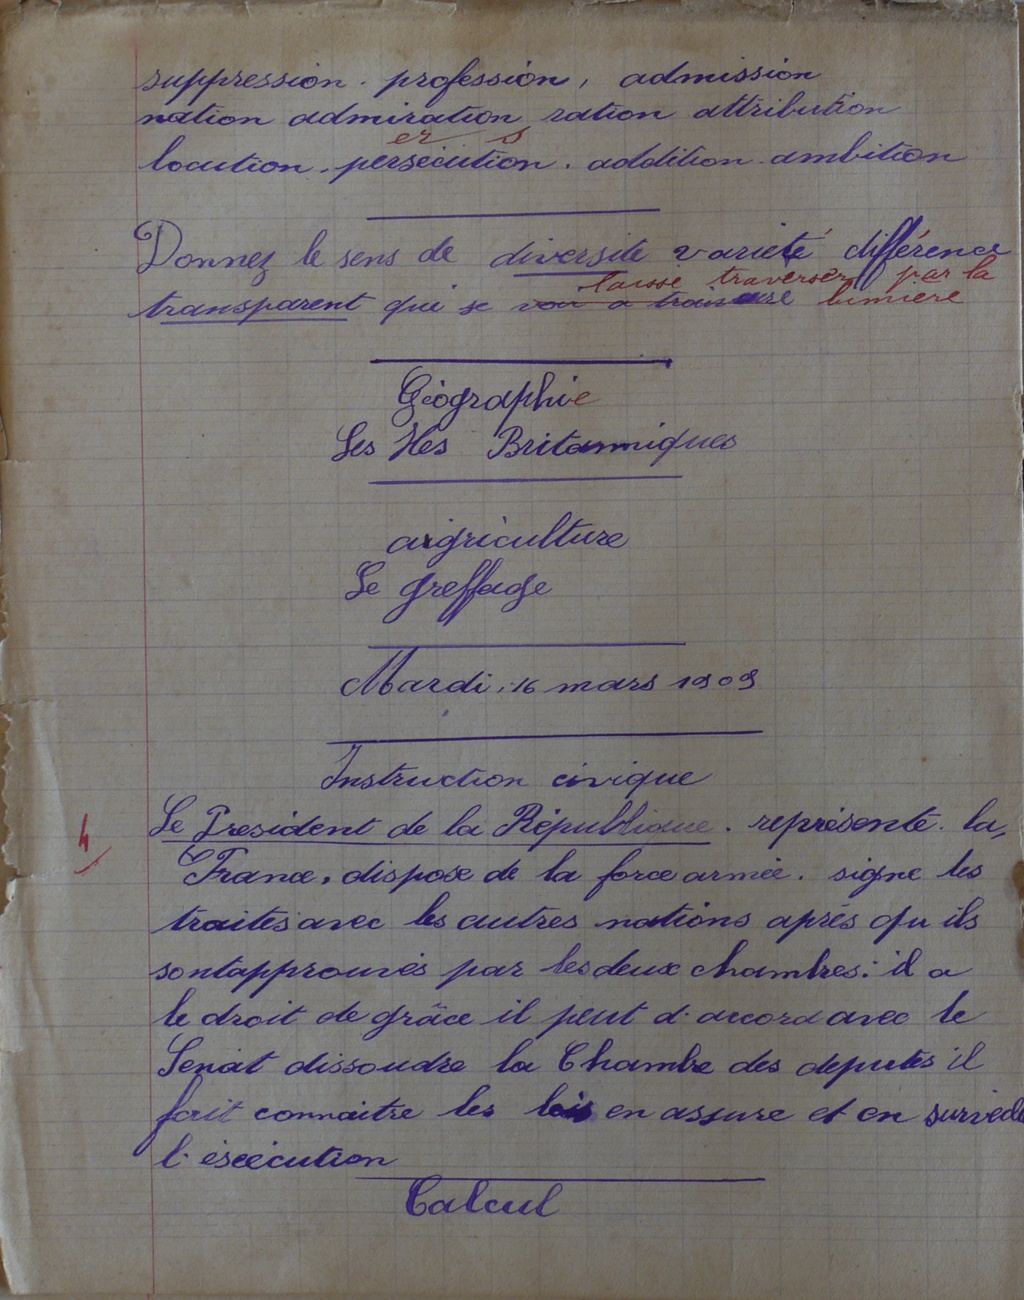 suppression. profession, admission
nation admiration ration attribution
er s
locution. persécution. addition ambition
Donnez le sens de diversite varieté différence
laisse traverser par la
transparent qui se voir a lumière
Géographie
Les Iles Britanniques
aigriculture
Le greffage
Mardi. 16 mars 1909
Instruction civique
4
Le President de la République. représente. la
France. dispose de la force armée. signe les
traités avec les autres nations aprés qu'ils
sont approuvés par les deux chambres: il a
le droit de grâce il peut d'accord avec le
Senat dissoudre la Chambre des deputés il
fait connaitre les lois en assure et en surveille
l'éxécution
Calcul